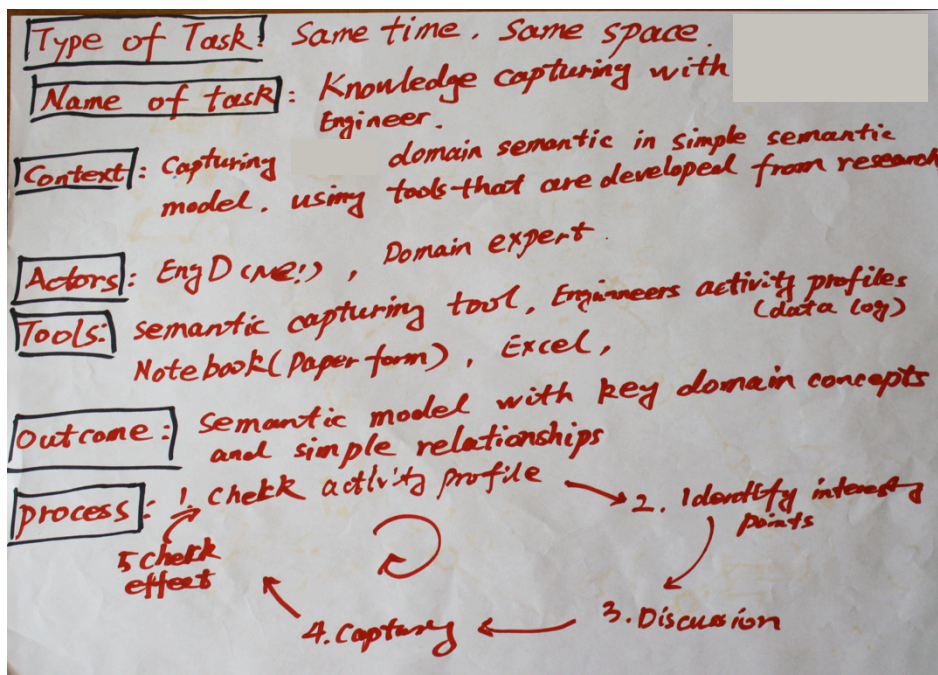 Type of Task: Same time. Same space.
Name of task: Knowledge capturing with
Engineer.
Context: Capturing domain semantic in simple semantic
model. using tools that are developed from research
Actors: EngD (ME!), Domain expert.
Tools: Semantic capturing tool, Engineers activity profiles
(data log)
Notebook (Paper form), Excel,
Outcome: Semantic model with key domain concepts
and simple relationships
process: 1. Chekk activity profile
2. Identify interesting
points
3. Discussion
4. Capturing
5. Chekk
effect